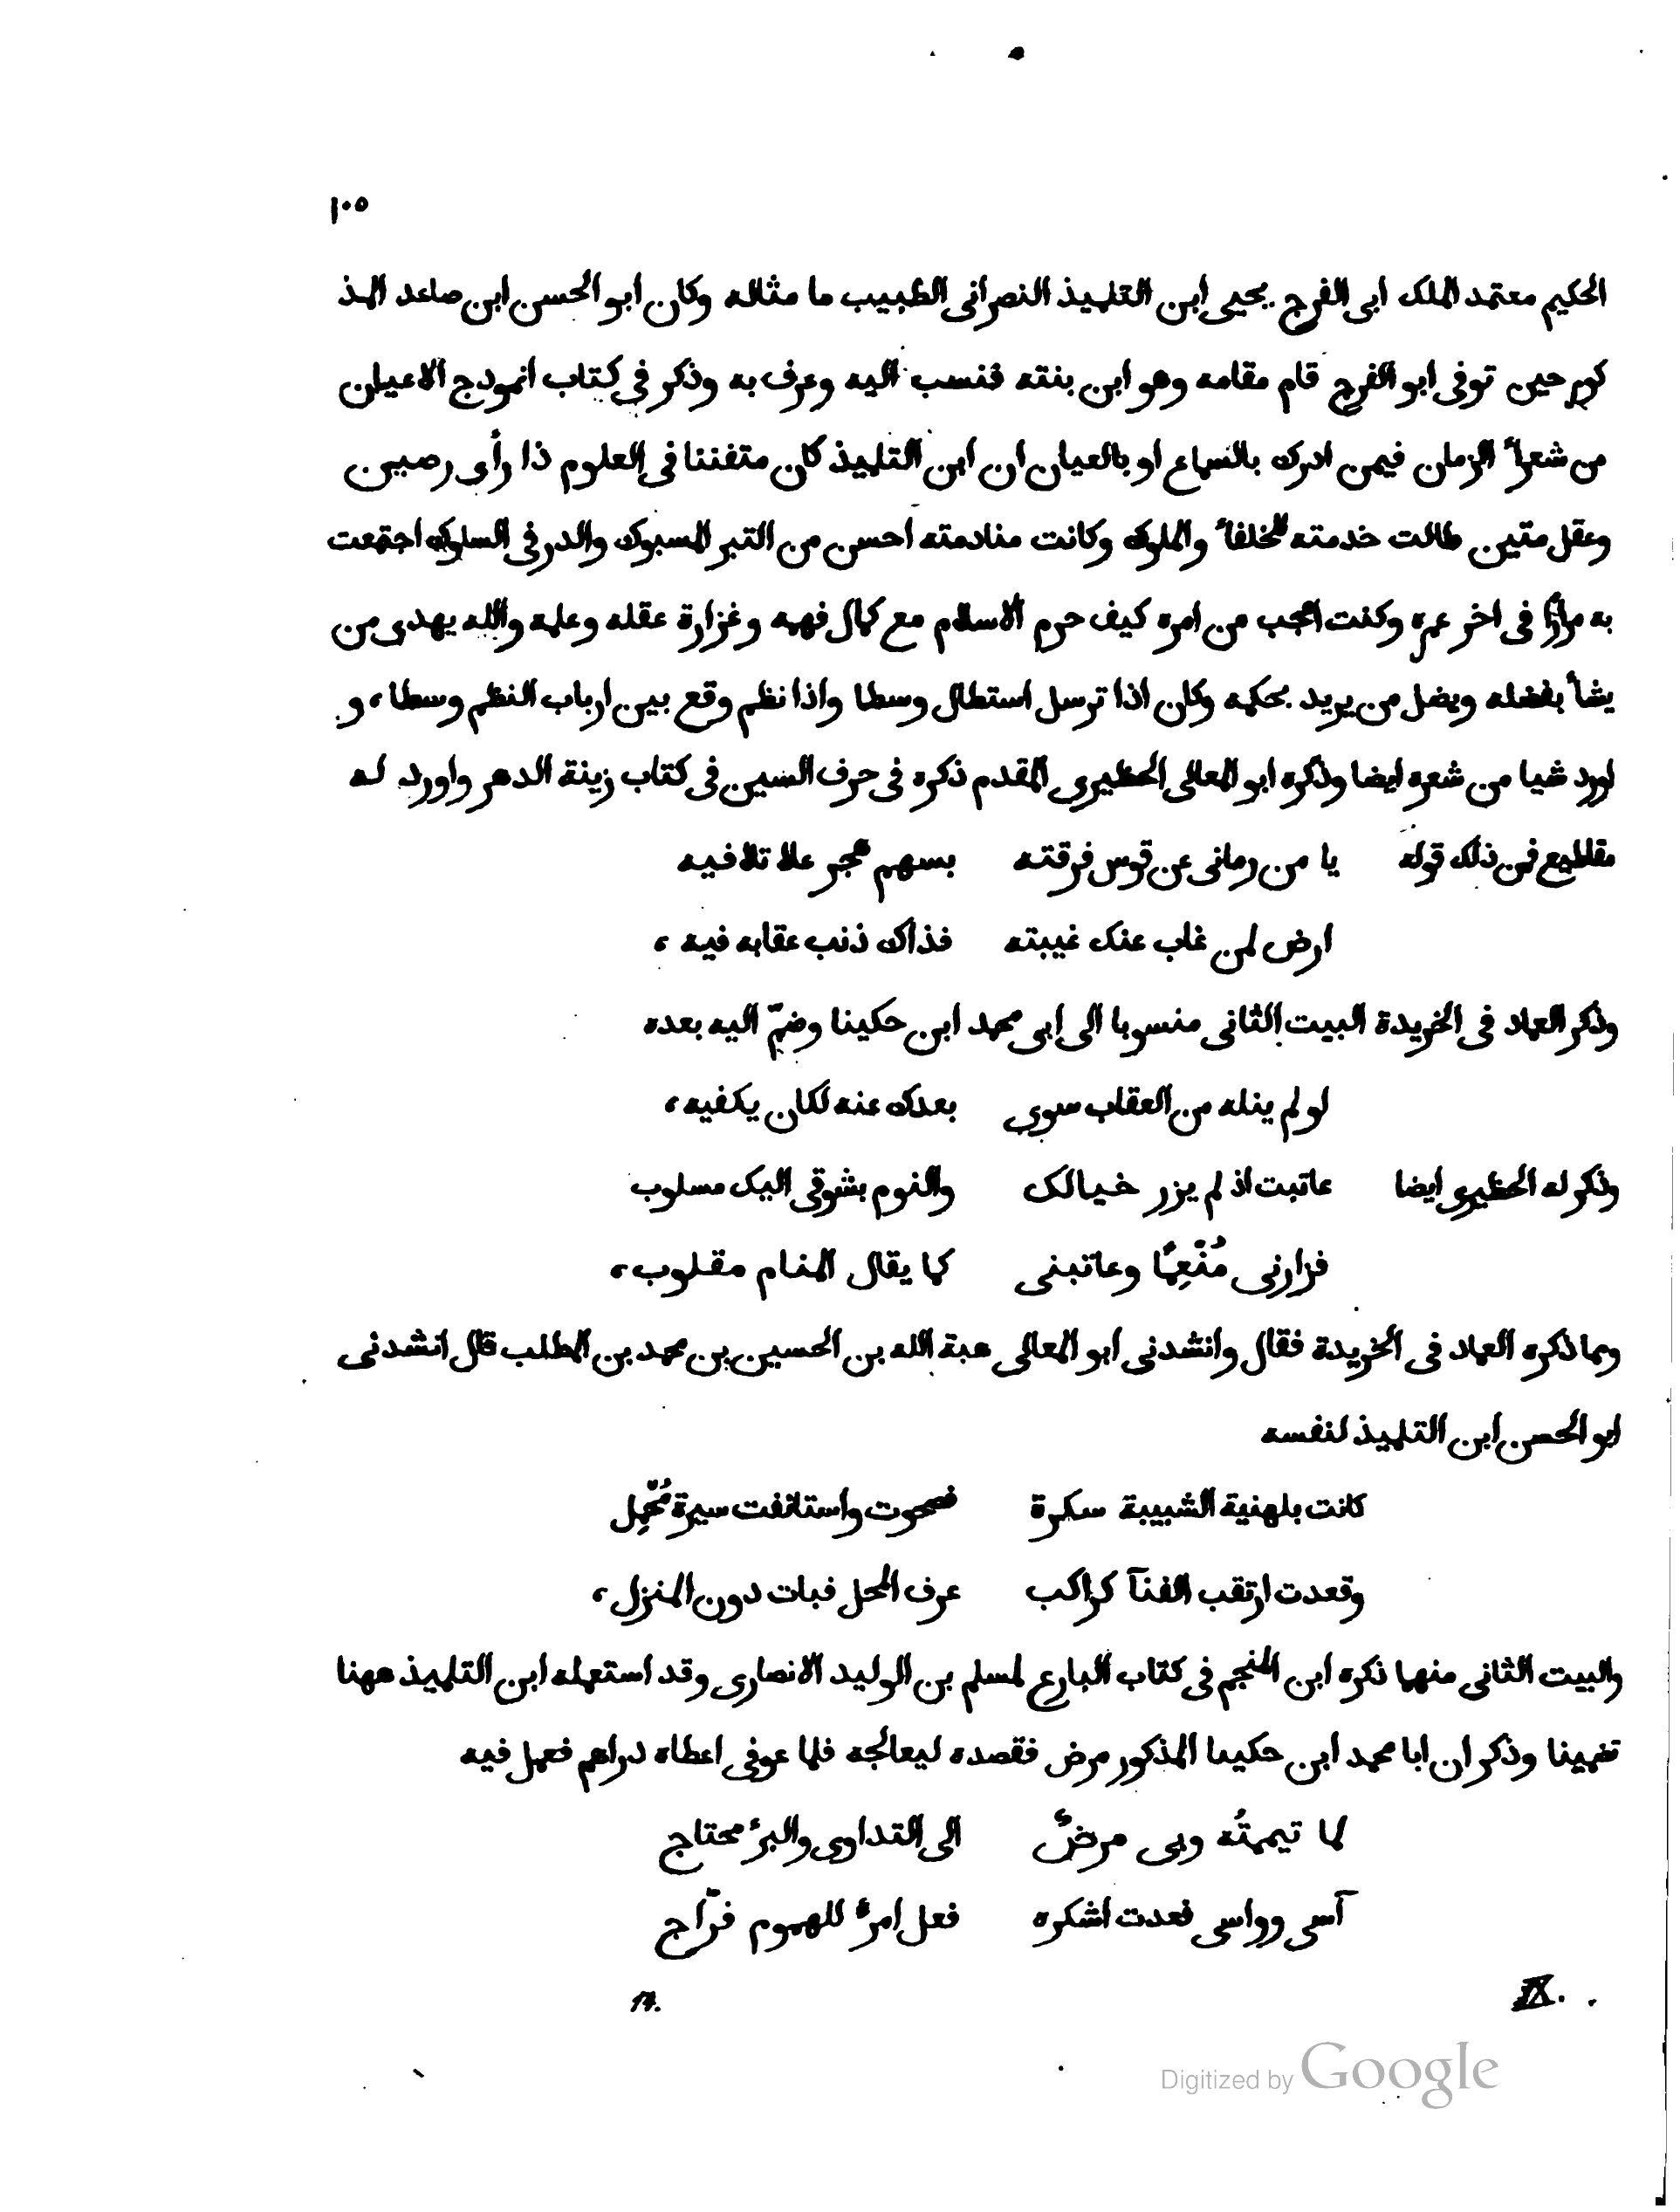 ١٠٥
الحكيم معتمد الملك ابى الفرج يحيى ابن التلميذ النصرانى الطبيب ما مثاله وكان ابو الحسن ابن صاعد المذ
كور حين توفى ابو الفرج قام مقامه وهو ابن بنته فنسب اليه وعرف به وذكر فى كتاب انموذج الاعيان
من شعرآ الزمان فيمن ادرك بالسماع او بالعيان ان ابن التلميذ كان متفننا فى العلوم ذا رأى رصين
وعقل متين طالت خدمته للخلفآ والملوك وكانت منادمته احسن من التبر المسبوك والدر فى السلوك اجتمعت
به مرارًا فى اخر عمره وكنت اعجب من امره كيف حرم الاسلام مع كمال فهمه وغزارة عقله وعلمه والله يهدى من
يشآ بفضله ويضل من يريد بحكمه وكان اذا ترسل استطال وسطا واذا نظم وقع بين ارباب النظم وسطا، و
اورد شيا من شعره ايضا وذكره ابو المعالى الحظيرى المقدم ذكره فى حرف السين فى كتاب زينة الدهر واورد له
مقاطيع فمن ذلك قوله يا من رمانى عن قوس فرقته بسهم هجر علا تلافيه
ارض لمن غاب عنك غيبته فذاك ذنب عقابه فيه،
وذكر العماد فى الخريدة البيت الثانى منسوبا الى ابى محمد ابن حكينا وضمّ اليه بعده
لو لم ينله من العقاب سوى بعدك عنه لكان يكفيه،
وذكر له الحظيرى ايضا عاتبت اذ لم يزر خيالك والنوم بشوقى اليك مسلوب
فزارنى مُنْعِمًا وعاتبنى كما يقال المنام مقلوب،
ومما ذكره العماد فى الخريدة فقال وانشدنى ابو المعالى هبة الله بن الحسين بن محمد بن المطلب قال انشدنى
ابو الحسن ابن التلميذ لنفسه
كانت بلهنية الشبيبة سكرة فصحوت واستانفت سيرة مُجّمِل
وقعدت ارتقب الفنآ كراكب عرف المحل فبات دون المنزل،
والبيت الثانى منهما ذكره ابن المنجم فى كتاب البارع لمسلم بن الوليد الانصارى وقد استعمله ابن التلميذ ههنا
تضمينا وذكر ان ابا محمد ابن حكينا المذكور مرض فقصده ليعالجه فلما عوفى اعطاه دراهم فعمل فيه
لما تيممتُه وبى مرضٌ الى التداوى والبرء محتاج
آسى وواسى فعدت اشكره فعل امرء للهموم فرّاج
IX. 14.
Digitized by Google